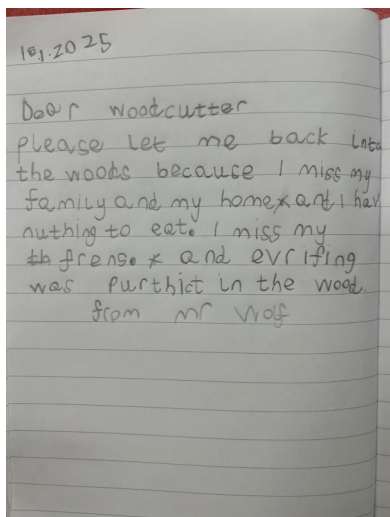 15.1.2025
Dear woodcutter
please let me back into
the woods because I miss my
family and my home and I hav
nuthing to eat. I miss my
frense. and evrifing
was purthict in the wood.
from mr Wolf